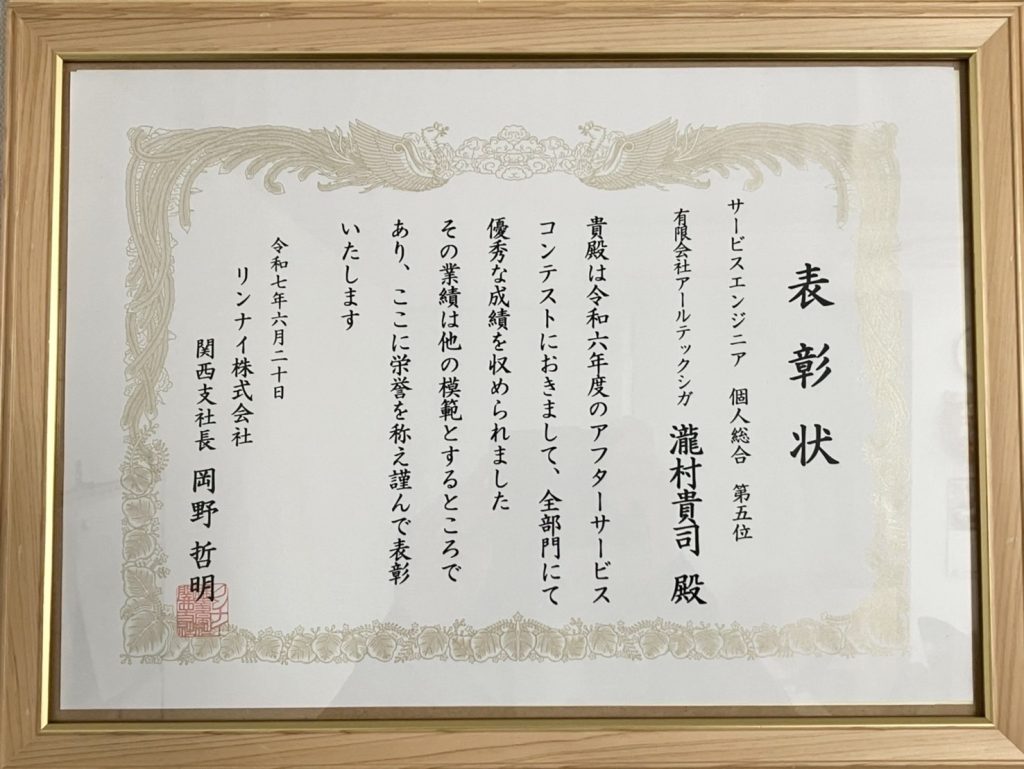 表彰状
サービスエンジニア 個人総合 第五位
有限会社アールテックシガ 瀧村貴司 殿
貴殿は令和六年度のアフターサービス
コンテストにおきまして、全部門にて
優秀な成績を収められました
その業績は他の模範とするところで
あり、ここに栄誉を称え謹んで表彰
いたします
令和七年六月二十日
リンナイ株式会社
関西支社長 岡野 哲明